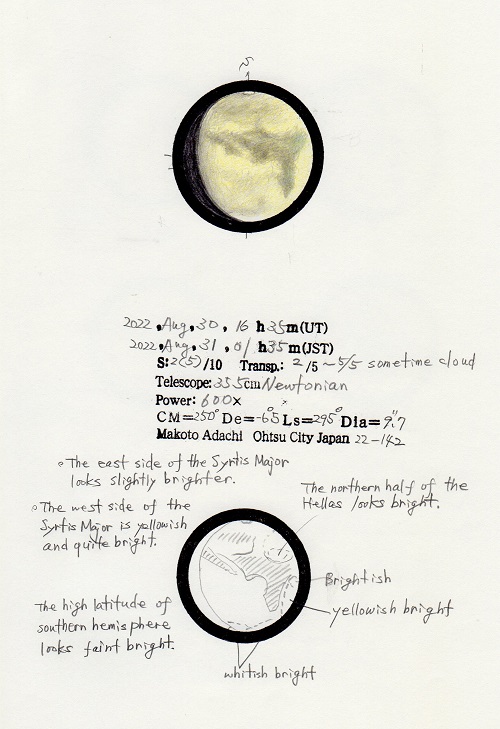 S
2022, Aug, 30, 16 h 35 m(UT)
2022, Aug, 31, 01 h 35 m(JST)
S: 2(5)/10 Transp.: 2/5 ~ 5/5 sometime cloud
Telescope: 35.5cm Newtonian
Power: 600×
CM=250° De=-6.5 Ls=295° Dia=9".7
Makoto Adachi Ohtsu City Japan 22-142
○The east side of the Syrtis Major
looks slightly brighter.
○The west side of the
Syrtis Major is yallowish
and quite bright.
The northern half of the
Hellas looks bright.
Brightish
yellowish bright
The high latitude of
southern hemisphere
looks faint bright.
whitish bright